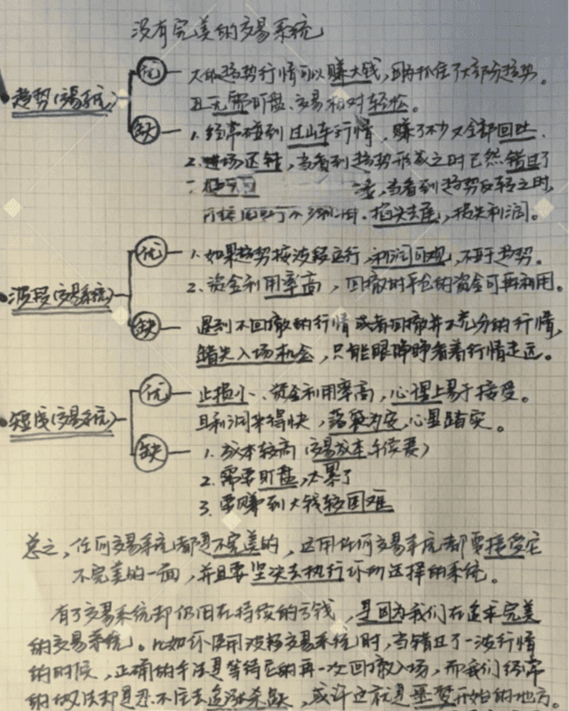 没有完美的交易系统
趋势(交易系统)
优 大的趋势行情可以赚大钱,因为抓住了大部分趋势。
且无需盯盘、交易相对轻松。
缺 1.经常碰到过山车行情,赚了不少又全部回吐.
2.进场迟钝,当看到趋势形成之时已然错过了
当看到趋势反转之时,
损失利润。
波段(交易系统)
优 1.如果趋势按波段运行,利润可观,不亚于趋势。
2、资金利用率高,回撤时平仓的资金可再利用。
缺 遇到不回撤的行情或者回撤并不充分的行情,
错失入场机会,只能眼睁睁看着行情走远。
短线(交易系统)
优 止损小、资金利用率高,心理上易于接受。
且利润来得快,落袋为安,心里踏实。
缺 1.成本较高(交易成本手续费)
2.需要盯盘,太累了
3.要赚到大钱较困难
总之,任何交易系统都是不完美的,运用任何交易系统都要接受它
不完美的一面,并且要坚决去执行你所选择的系统。
有了交易系统却仍旧在持续的亏钱,是因为我们在追求完美
的交易系统。比如你使用波段交易系统时,当错过了一波行情
的时候,正确的手法是等待它的再一次回撤入场,而我们经常
的做法却是忍不住去追涨杀跌,或许这就是噩梦开始的地方。